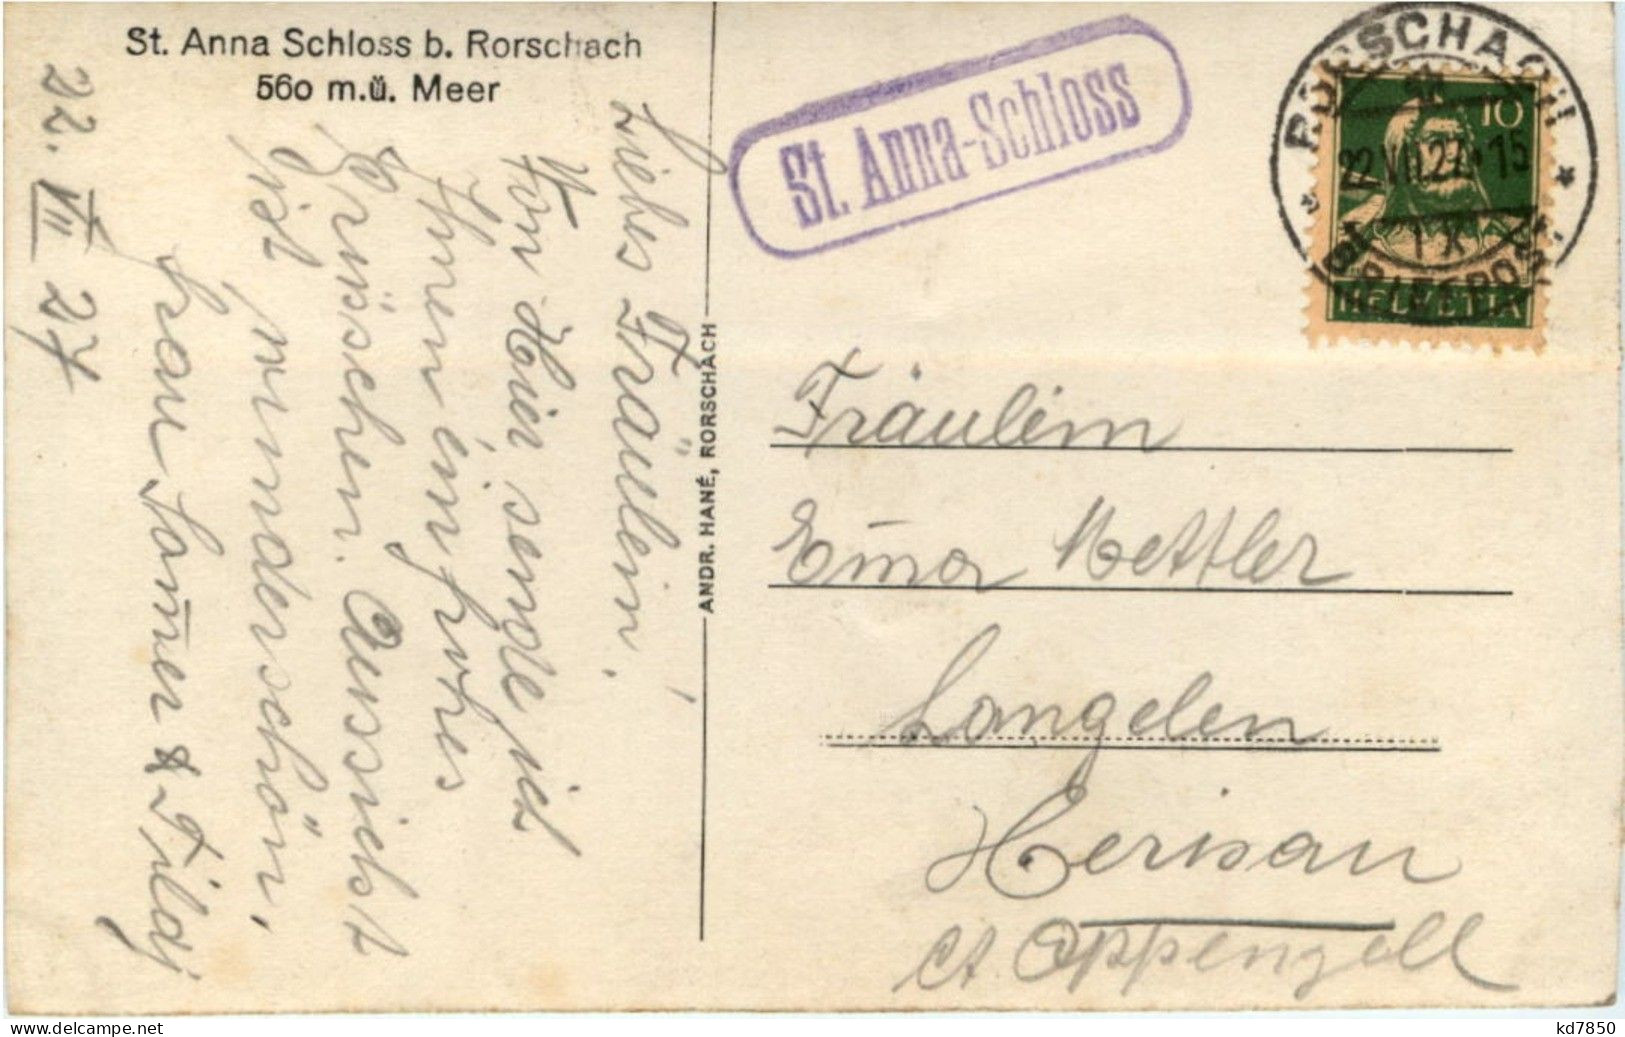 St. Anna Schloss b. Rorschach
560 m.ü. Meer
22. VII 27
Liebes Fräulein!
Von Hier sende ich
Ihnen ein frohes
Grüsschen. Aussicht
ist wunderschön.
Frau Sommer & Tildj
ANDR. HANÉ, RORSCHACH
St. Anna-Schloss
RORSCHACH
22.VII.27. 15
BRIEFPOST
10
HELVETIA
Fräulein
Emma Mettler
Langelen
Herisau
Ct. Appenzell
kd7850